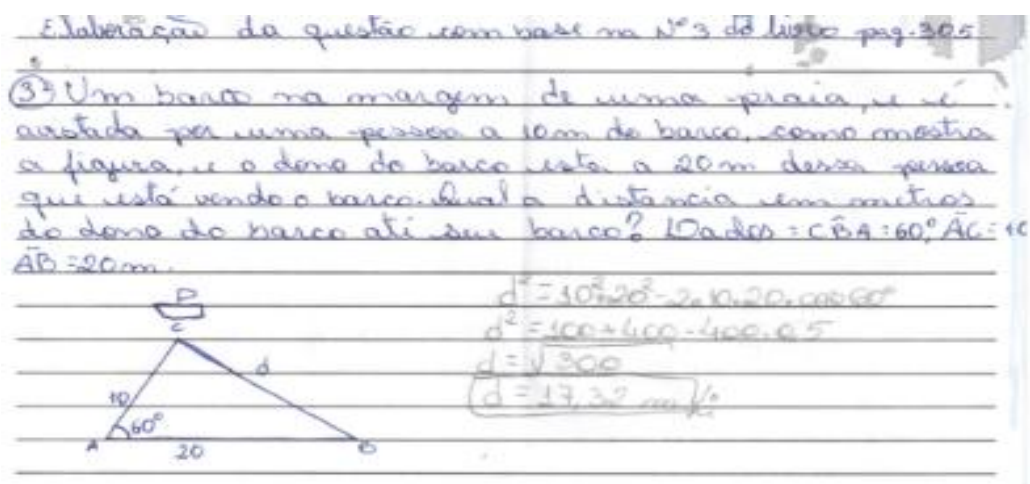 Elaboração da questão com base na Nº 3 do livro pag. 305
③ Um barco na margem de uma praia, e é
avistada por uma pessoa a 10m do barco, como mostra
a figura, e o dono do barco esta a 20m dessa pessoa
que está vendo o barco. Qual a distancia em metros
do dono do barco até seu barco? Dados = CB̂A = 60º, AC = 10
AB = 20m.
d² = 10²+20² - 2.10.20.cos60º
d² = 100 + 400 - 400.0,5
d = √300
d = 17,32 m
C
d
10
60º
A
20
B